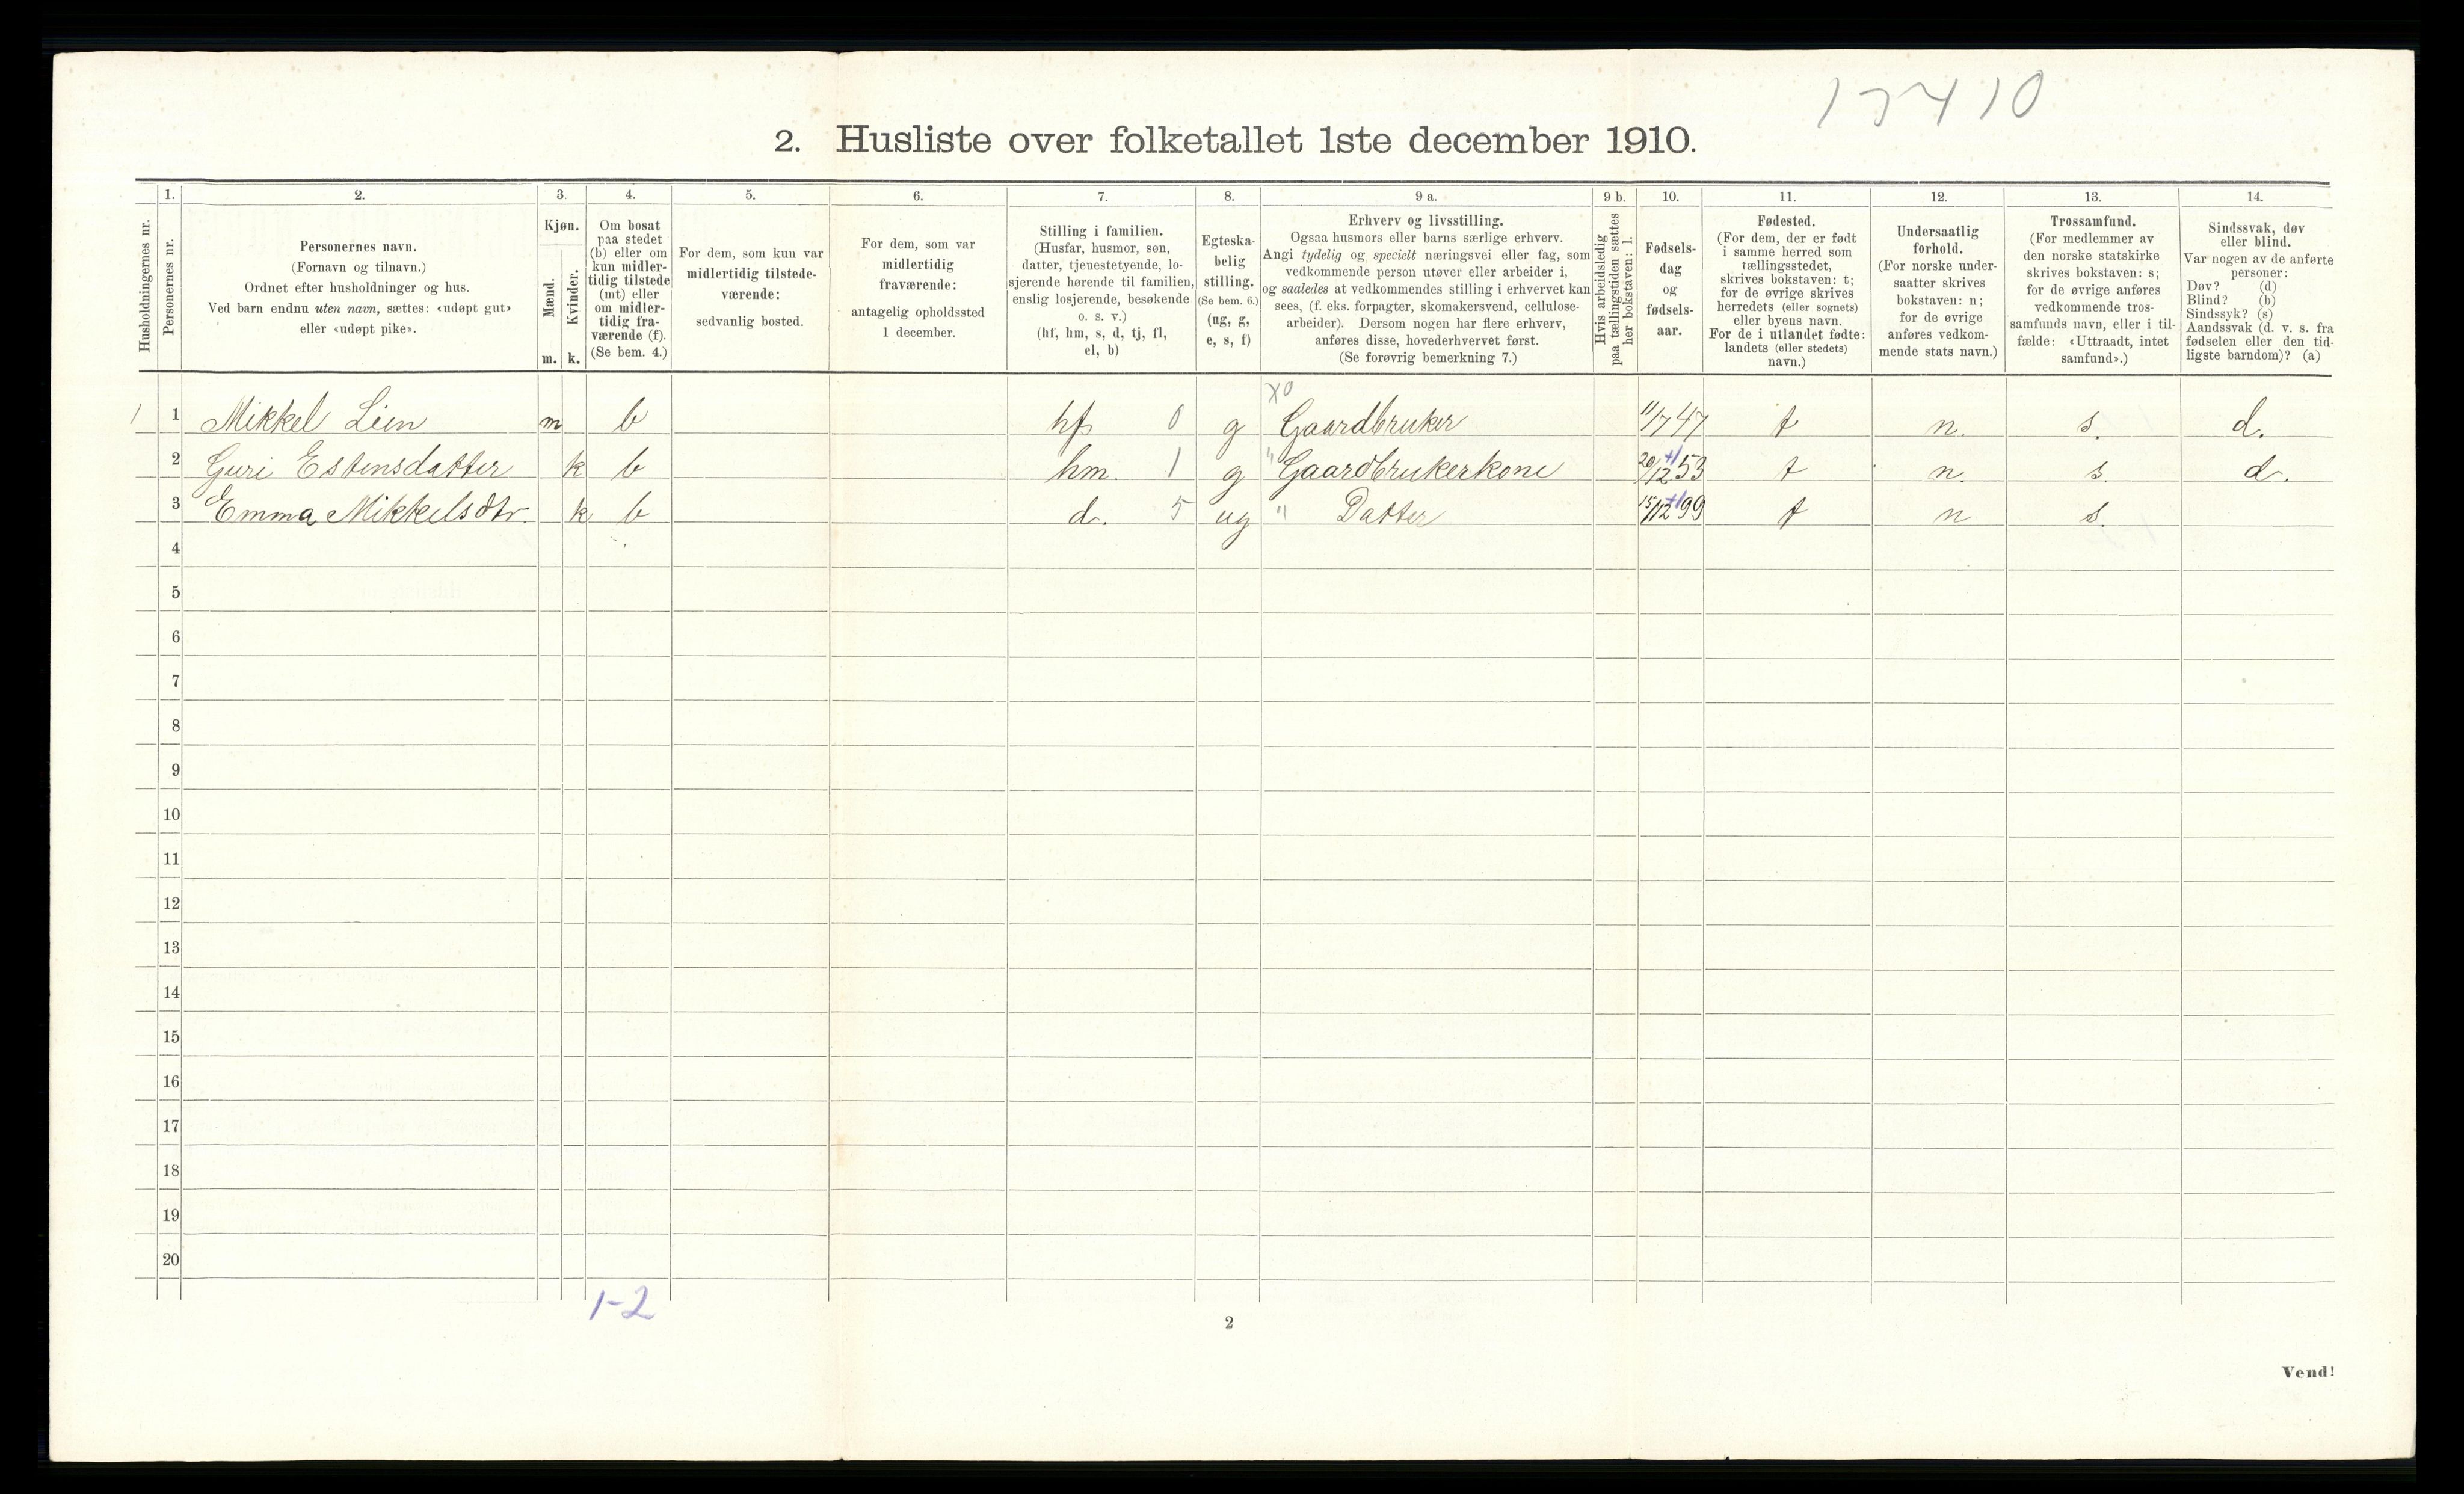 13410
2. Husliste over folketallet 1ste december 1910.
Husholdningernes nr.
1.
Personernes nr.
2.
Personernes navn.
(Fornavn og tilnavn.)
Ordnet efter husholdninger og hus.
Ved barn endnu uten navn, sættes: «udøpt gut»
eller «udøpt pike».
3.
Kjøn.
Mænd.
m.
Kvinder.
k.
4.
Om bosat
paa stedet
(b) eller om
kun midler-
tidig tilstede
(mt) eller
om midler-
tidig fra-
værende (f).
(Se bem. 4.)
5.
For dem, som kun var
midlertidig tilstede-
værende:
sedvanlig bosted.
6.
For dem, som var
midlertidig
fraværende:
antagelig opholdssted
1 december.
7.
Stilling i familien.
(Husfar, husmor, søn,
datter, tjenestetyende, lo-
sjerende hørende til familien,
enslig losjerende, besøkende
o. s. v.)
(hf, hm, s, d, tj, fl,
el, b)
8.
Egteska-
belig
stilling.
(Se bem. 6.)
(ug, g,
e, s, f)
9 a.
Erhverv og livsstilling.
Ogsaa husmors eller barns særlige erhverv.
Angi tydelig og specielt næringsvei eller fag, som
vedkommende person utøver eller arbeider i,
og saaledes at vedkommendes stilling i erhvervet kan
sees, (f. eks. forpagter, skomakersvend, cellulose-
arbeider). Dersom nogen har flere erhverv,
anføres disse, hovederhvervet først.
(Se forøvrig bemerkning 7.)
9 b.
Hvis arbeidsledig
paa tællingstiden sættes
her bokstaven: l.
10.
Fødsels-
dag
og
fødsels-
aar.
11.
Fødested.
(For dem, der er født
i samme herred som
tællingsstedet,
skrives bokstaven: t;
for de øvrige skrives
herredets (eller sognets)
eller byens navn.
For de i utlandet fødte:
landets (eller stedets)
navn.)
12.
Undersaatlig
forhold.
(For norske under-
saatter skrives
bokstaven: n;
for de øvrige
anføres vedkom-
mende stats navn.)
13.
Trossamfund.
(For medlemmer av
den norske statskirke
skrives bokstaven: s;
for de øvrige anføres
vedkommende tros-
samfunds navn, eller i til-
fælde: «Uttraadt, intet
samfund».)
14.
Sindssvak, døv
eller blind.
Var nogen av de anførte
personer:
Døv? (d)
Blind? (b)
Sindssyk? (s)
Aandssvak (d. v. s. fra
fødselen eller den tid-
ligste barndom)? (a)
X0
1 1 Mikkel Lien m b hf 0 g Gaardbruker 11/7 47 t n. s. d.
2 Guri Estensdatter k b hm. 1 g " Gaardbrukerkone 20/12 +1 53 t n. s. d.
3 Emma Mikkelsdtr. k b d. 5 ug " Datter 15/12 +1 99 t n s.
4
5
6
7
8
9
10
11
12
13
14
15
16
17
18
19
20
1-2
2
Vend!